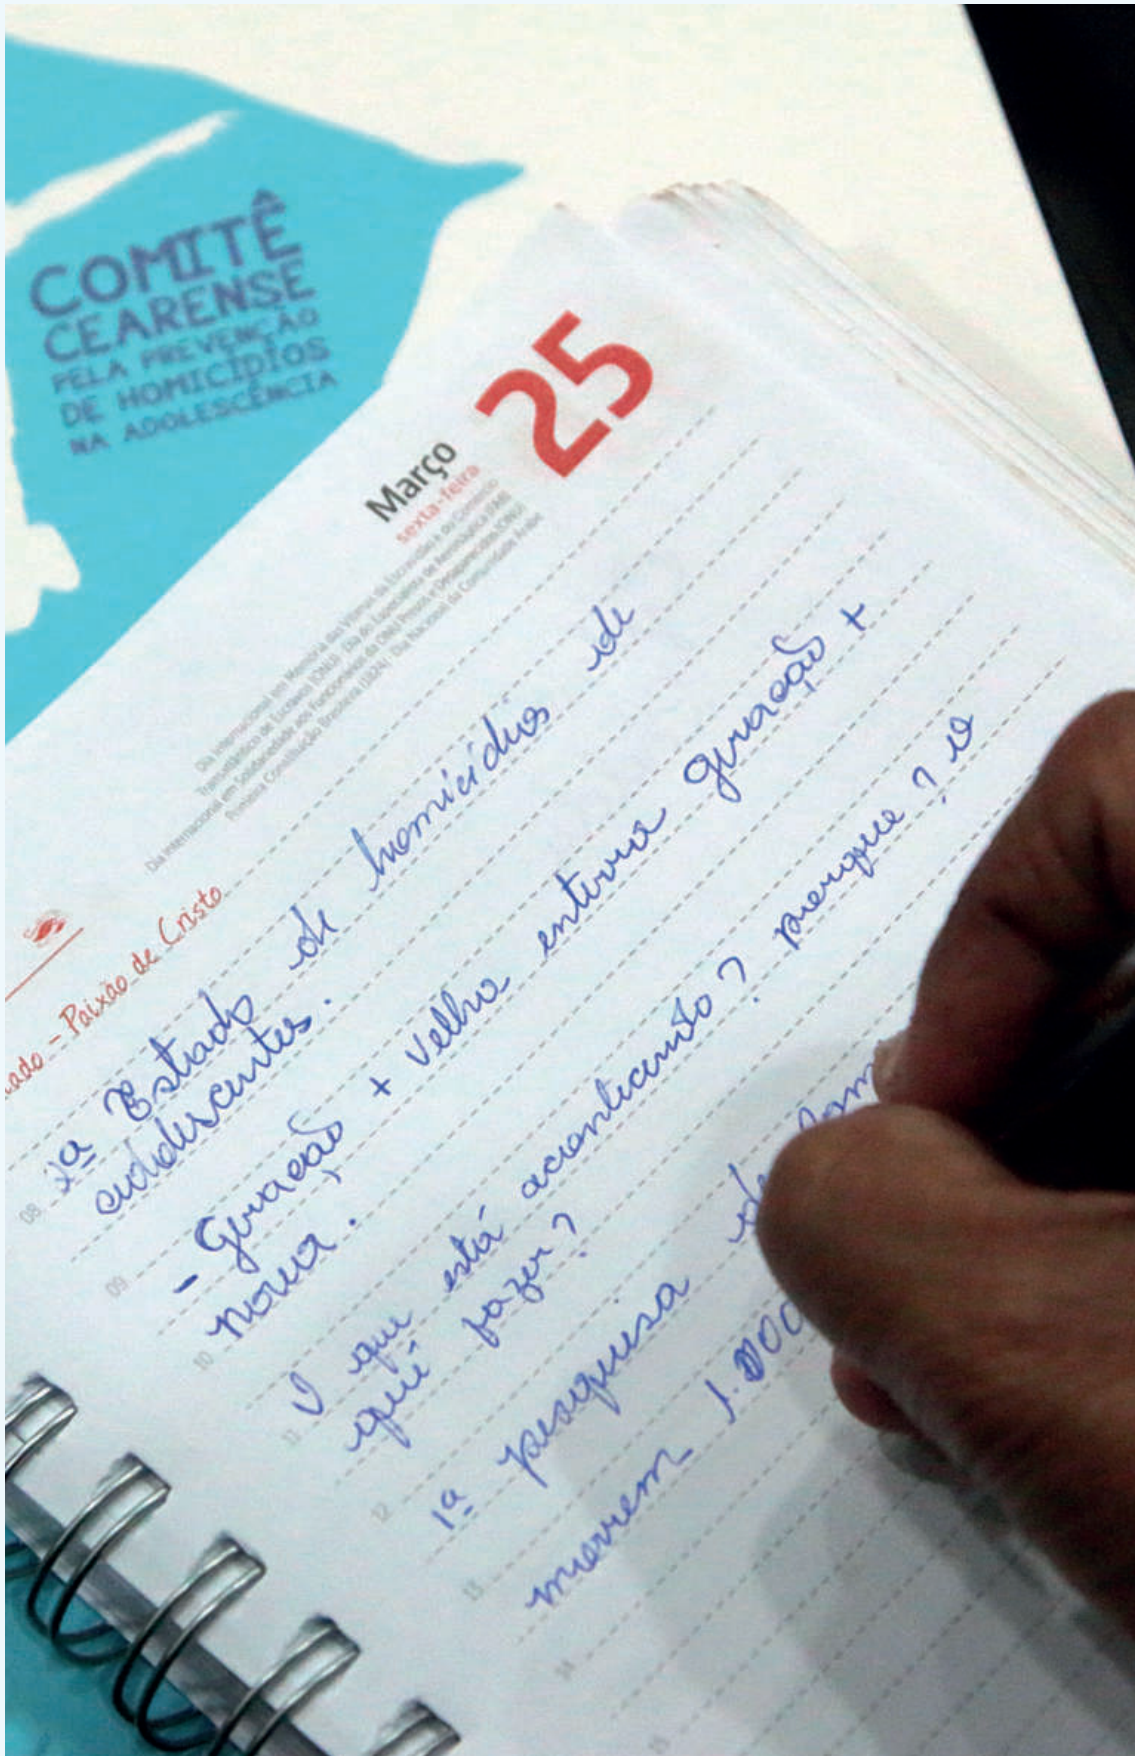 COMITÊ
CEARENSE
PELA PREVENÇÃO
DE HOMICÍDIOS
NA ADOLESCÊNCIA
25
Março
sexta-feira
Dia Internacional em Memória das Vítimas da Escravidão e do Comércio
Transatlântico de Escravos (ONU) Dia do Especialista de Aeronáutica (FAB)
Dia Internacional em Solidariedade aos Funcionários da ONU Presos e Desaparecidos (ONU)
Primeira Constituição Brasileira (1824) Dia Nacional da Comunidade Árabe
- Paixão de Cristo
08 1ª Estado de homicídios de
adolescentes.
09 - Geração + velha enterra geração +
10 nova.
11 O que está acontecendo? porque? o
quê fazer?
12 1ª pesquisa de
13 morrem 1.
14
15